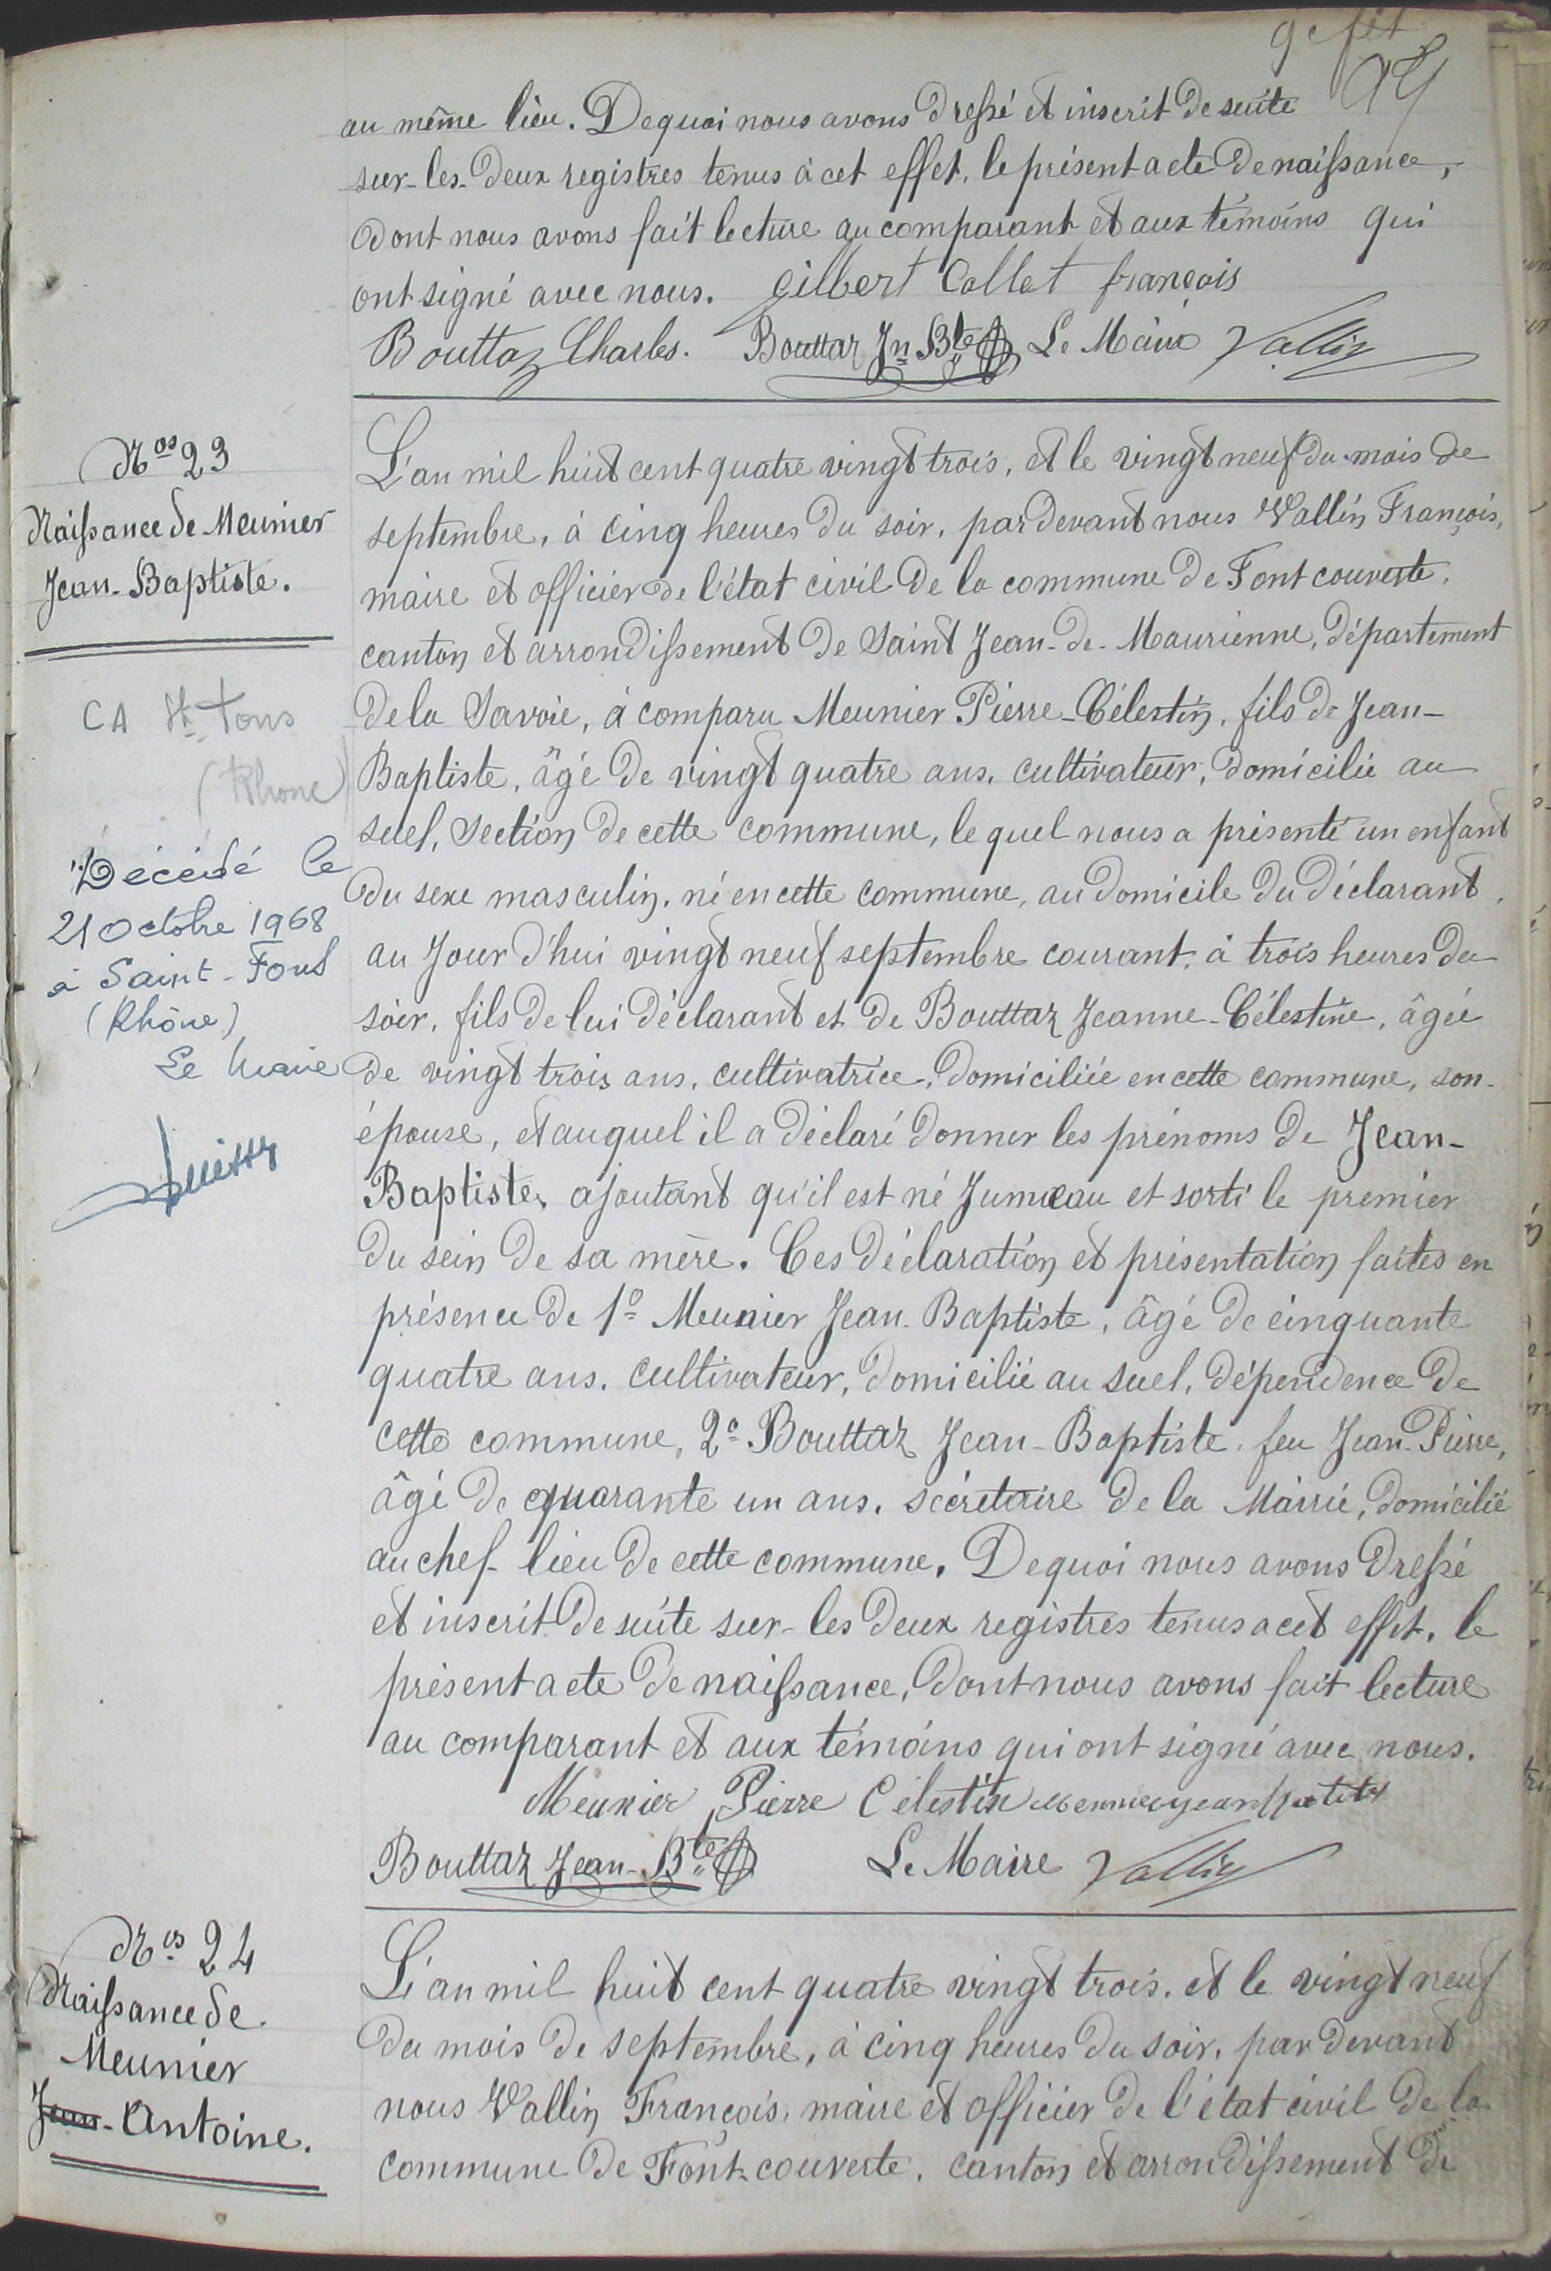 9e fet
au même lieu. Dequoi nous avons dressé et inscrit de suite
sur-les-deux registres tenus à cet effet, le présent acte de naissance,
dont nous avons fait lecture au comparant et aux témoins qui
ont signé avec nous. Gilbert Collet françois
Bouttaz Charles. Bouttaz Jn Bte Le Maire Vallin
Nos 23
Naissance de Meunier
Jean-Baptiste.
L'an mil huit cent quatre vingt trois, et le vingt neuf du mois de
septembre, à cinq heures du soir, pardevant nous Vallin François,
maire et officier de l'état civil de la commune de Font couverte,
canton et arrondissement de Saint Jean-de-Maurienne, département
de la Savoie, à comparu Meunier Pierre-Célestin, fils de Jean-
Baptiste, âgé de vingt quatre ans, cultivateur, domicilié au
suel, section de cette commune, le quel nous a présenté un enfant
du sexe masculin, né en cette commune, au domicile du déclarant,
au jour d'hui vingt neuf septembre courant, à trois heures du
soir, fils de lui déclarant et de Bouttaz Jeanne-Célestine, âgée
de vingt trois ans, cultivatrice, domiciliée en cette commune, son
épouse, et auquel il a déclaré donner les prénoms de Jean-
Baptiste, ajoutant qu'il est né Jumeau et sorti le premier
du sein de sa mère. Ces déclaration et présentation faites en
présence de 1o Meunier Jean-Baptiste, âgé de cinquante
quatre ans, cultivateur, domicilié au suel, dépendence de
cette commune, 2o Bouttaz Jean-Baptiste feu Jean-Pierre,
âgé de quarante un ans, sécrétaire de la Mairie, domicilié
au chef-lieu de cette commune. Dequoi nous avons dressé
et inscrit de suite sur-les deux registres tenus a cet effet, le
présent acte de naissance, dont nous avons fait lecture
au comparant et aux témoins qui ont signé avec nous.
Meunier Pierre Célestin
Bouttaz Jean-Bte Le Maire Vallin
CA St Fons
(Rhone)
Décédé le
21 Octobre 1968
à Saint-Fons
(Rhône)
Le Maire
Nos 24
Naissance de
Meunier
Jean-Antoine.
L'an mil huit cent quatre vingt trois, et le vingt neuf
du mois de septembre, à cinq heures du soir, par devant
nous Vallin François, maire et officier de l'état civil de la
commune de Font-couverte, canton et arrondissement de